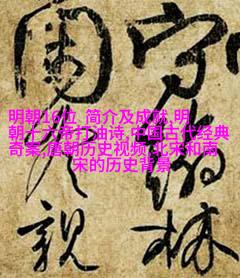 明朝16位 简介及成就,明
朝十六帝打油诗,中国古代经典
奇案,唐朝历史视频,北宋和南
宋的历史背景
守
林
親